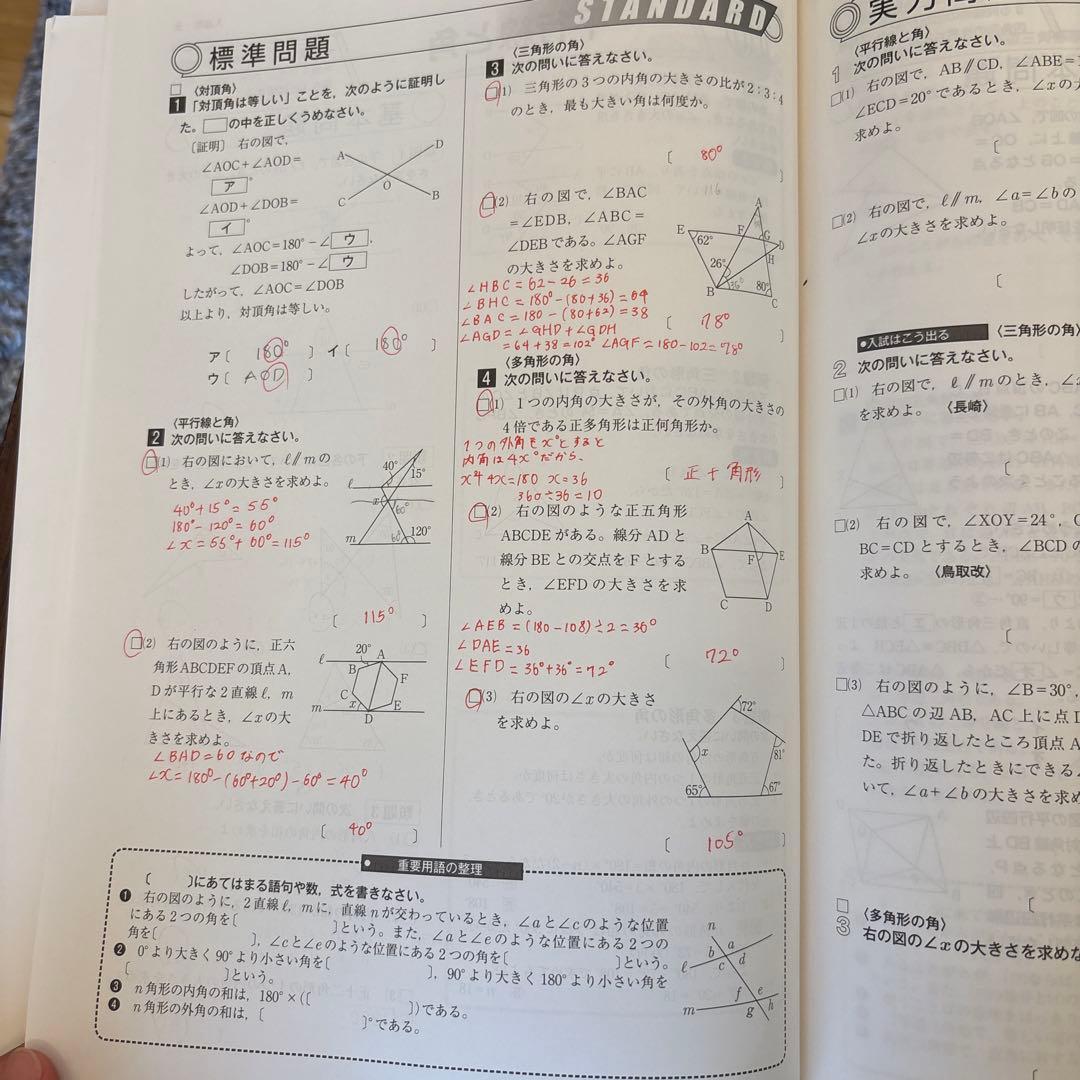 STANDARD
標準問題
〈対頂角〉
1 「対頂角は等しい」ことを，次のように証明し
た。□の中を正しくうめなさい。
〔証明〕 右の図で，
∠AOC＋∠AOD＝
ア °
∠AOD＋∠DOB＝
イ °
よって，∠AOC＝180°－∠ ウ ，
∠DOB＝180°－∠ ウ
したがって，∠AOC＝∠DOB
以上より，対頂角は等しい。
A
D
O
C
B
ア〔 180° 〕 イ〔 180° 〕
ウ〔 AOD 〕
〈平行線と角〉
2 次の問いに答えなさい。
□(1) 右の図において，ℓ∥mの
とき，∠xの大きさを求めよ。
40°+15°=55°
180°-120°=60°
∠x=55°+60°=115°
40°
15°
ℓ
x
60°
m
60
120°
〔 115° 〕
□(2) 右の図のように，正六
角形ABCDEFの頂点A，
Dが平行な2直線ℓ，m
上にあるとき，∠xの大
きさを求めよ。
∠BAD=60なので
∠x=180°-(60°+20°)-60°=40°
20°
A
ℓ
B
F
C
x
E
m
D
〔 40° 〕
〈三角形の角〉
3 次の問いに答えなさい。
□(1) 三角形の3つの内角の大きさの比が2：3：4
のとき，最も大きい角は何度か。
〔 80° 〕
□(2) 右の図で，∠BAC
＝∠EDB，∠ABC＝
∠DEBである。∠AGF
の大きさを求めよ。
116
A
E
F
G
D
62°
H
26°
36°
80°
B
C
∠HBC=62-26=36
∠BHC=180°-(80+36)=64
∠BAC=180-(80+62)=38
∠AGD=∠GHD+∠GDH
=64+38=102° ∠AGF=180-102=78°
〔 78° 〕
〈多角形の角〉
4 次の問いに答えなさい。
□(1) 1つの内角の大きさが，その外角の大きさの
4倍である正多角形は正何角形か。
1つの外角をx°とすると
内角は4x°だから、
x+4x=180 x=36
360÷36=10
〔 正十角形 〕
□(2) 右の図のような正五角形
ABCDEがある。線分ADと
線分BEとの交点をFとする
とき，∠EFDの大きさを求
めよ。
A
B
E
F
C
D
∠AEB=(180-108)÷2=36°
∠DAE=36
∠EFD=36°+36°=72°
〔 72° 〕
□(3) 右の図の∠xの大きさ
を求めよ。
72°
x
81°
65°
67°
〔 105° 〕
重要用語の整理
〔 〕にあてはまる語句や数，式を書きなさい。
❶ 右の図のように，2直線ℓ，mに，直線nが交わっているとき，∠aと∠cのような位置
にある2つの角を〔 〕という。また，∠aと∠eのような位置にある2つの
角を〔 〕，∠cと∠eのような位置にある2つの角を〔 〕という。
❷ 0°より大きく90°より小さい角を〔 〕，90°より大きく180°より小さい角を
〔 〕という。
❸ n角形の内角の和は，180°×(〔 〕)である。
❹ n角形の外角の和は，〔 〕°である。
n
b
a
ℓ
c
d
f
e
m
g
h
〈平行線と角〉
1 次の問いに答えなさい。
□(1) 右の図で，AB∥CD，∠ABE＝
∠ECD＝20°であるとき，∠xの
求めよ。
〔
□(2) 右の図で，ℓ∥m，∠a＝∠bの
∠xの大きさを求めよ。
〔
●入試はこう出る 〈三角形の角〉
2 次の問いに答えなさい。
□(1) 右の図で，ℓ∥mのとき，∠x
を求めよ。 〈長崎〉
〔
□(2) 右の図で，∠XOY＝24°，
BC＝CDとするとき，∠BCDの
求めよ。 〈鳥取改〉
〔
□(3) 右の図のように，∠B＝30°，
△ABCの辺AB，AC上に点
DEで折り返したところ頂点A
た。折り返したときにできる
いて，∠a＋∠bの大きさを求め
〔
〈多角形の角〉
3 右の図の∠xの大きさを求めな
〔